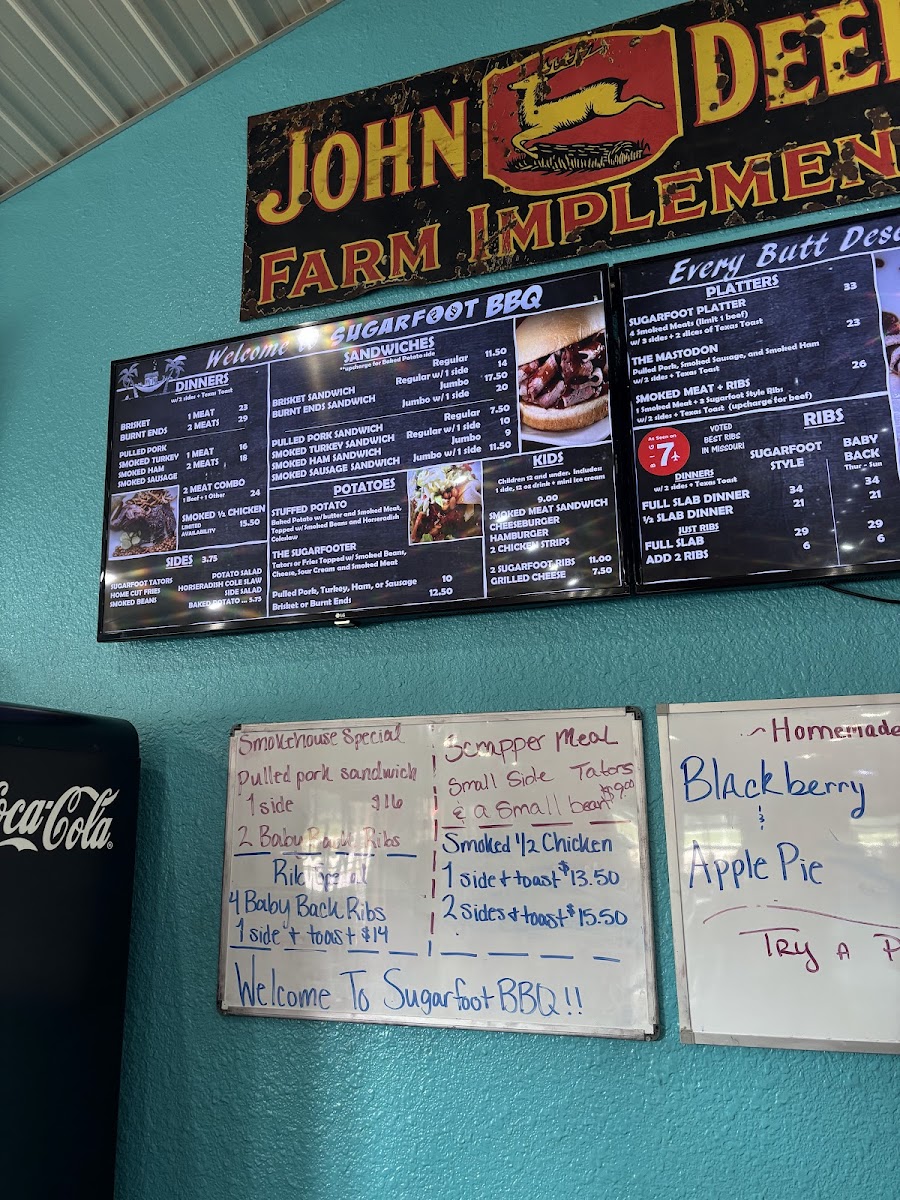 JOHN DEE
FARM IMPLEMEN
Welcome to SUGARFOOT BBQ
DINNERS
w/2 sides + Texas Toast
BRISKET 1 MEAT 23
BURNT ENDS 2 MEATS 29
PULLED PORK
SMOKED TURKEY 1 MEAT 16
SMOKED HAM 2 MEATS 18
SMOKED SAUSAGE
2 MEAT COMBO
1 Beef + 1 Other 24
SMOKED ½ CHICKEN
LIMITED
AVAILABILITY 15.50
SIDES 3.75
SUGARFOOT TATORS
HOME CUT FRIES
SMOKED BEANS
POTATO SALAD
HORSERADISH COLE SLAW
SIDE SALAD
BAKED POTATO ... 5.75
SANDWICHES
**upcharge for Baked Potato side
BRISKET SANDWICH
BURNT ENDS SANDWICH
Regular 11.50
Regular w/1 side 14
Jumbo 17.50
Jumbo w/1 side 20
PULLED PORK SANDWICH
SMOKED TURKEY SANDWICH
SMOKED HAM SANDWICH
SMOKED SAUSAGE SANDWICH
Regular 7.50
Regular w/1 side 10
Jumbo 9
Jumbo w/1 side 11.50
POTATOES
STUFFED POTATO
Baked Potato w/butter and Smoked Meat,
Topped w/Smoked Beans and Horseradish
Coleslaw
THE SUGARFOOTER
Tators or Fries Topped w/Smoked Beans,
Cheese, Sour Cream and Smoked Meat
Pulled Pork, Turkey, Ham, or Sausage 10
Brisket or Burnt Ends 12.50
KIDS
Children 12 and under. Includes
1 side, 12 oz drink + mini ice cream
9.00
SMOKED MEAT SANDWICH
CHEESEBURGER
HAMBURGER
2 CHICKEN STRIPS
2 SUGARFOOT RIBS 11.00
GRILLED CHEESE 7.50
LG
Every Butt Des
PLATTERS
SUGARFOOT PLATTER 33
4 Smoked Meats (limit 1 beef)
w/ 3 sides + 2 slices of Texas Toast
THE MASTODON 23
Pulled Pork, Smoked Sausage, and Smoked Ham
w/2 sides + Texas Toast
SMOKED MEAT + RIBS 26
1 Smoked Meat + 3 Sugarfoot Style Ribs
w/2 sides + Texas Toast (upcharge for beef)
As Seen on
7
VOTED
BEST RIBS
IN MISSOURI
RIBS
SUGARFOOT
STYLE
BABY
BACK
Thur - Sun
DINNERS
w/2 sides + Texas Toast
FULL SLAB DINNER 34 34
½ SLAB DINNER 21 21
JUST RIBS
FULL SLAB 29 29
ADD 2 RIBS 6 6
Coca-Cola
Smokehouse Special
Pulled pork sandwich
1 side $16
2 Baby Back Ribs
Rib Special
4 Baby Back Ribs
1 side + toast $14
Scrapper Meal
Small Side Tators
& a Small bean $9.00
Smoked 1/2 Chicken
1 side + toast $13.50
2 sides + toast $15.50
Welcome To Sugarfoot BBQ!!
~Homemade
Blackberry
&
Apple Pie
Try A P